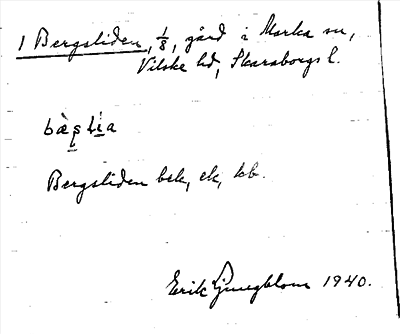 1 Bergsliden, 1/8, gård i Marka sn,
Vilske hd, Skaraborgs l.
bæ̀ʂḷia
Bergsliden bek, ek, kb.
Erik Ljungblom 1940.